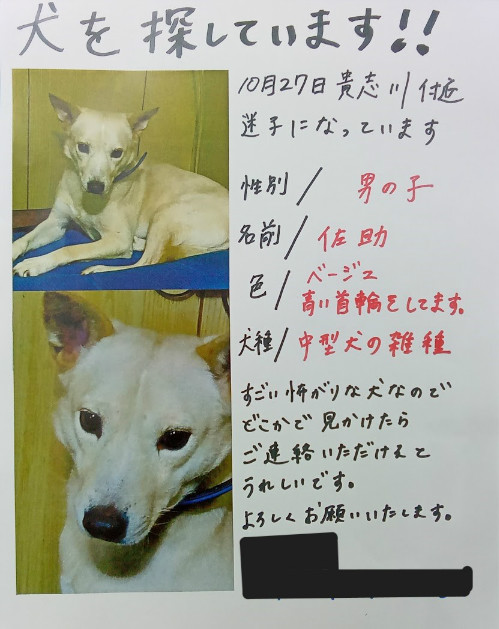 犬を探しています!!
10月27日貴志川付近
迷子になっています
性別/ 男の子
名前/ 佐助
色/ ベージュ
高い首輪をしてます。
犬種/ 中型犬の雑種
すごい怖がりな犬なので
どこかで見かけたら
ご連絡いただけると
うれしいです。
よろしくお願いいたします。